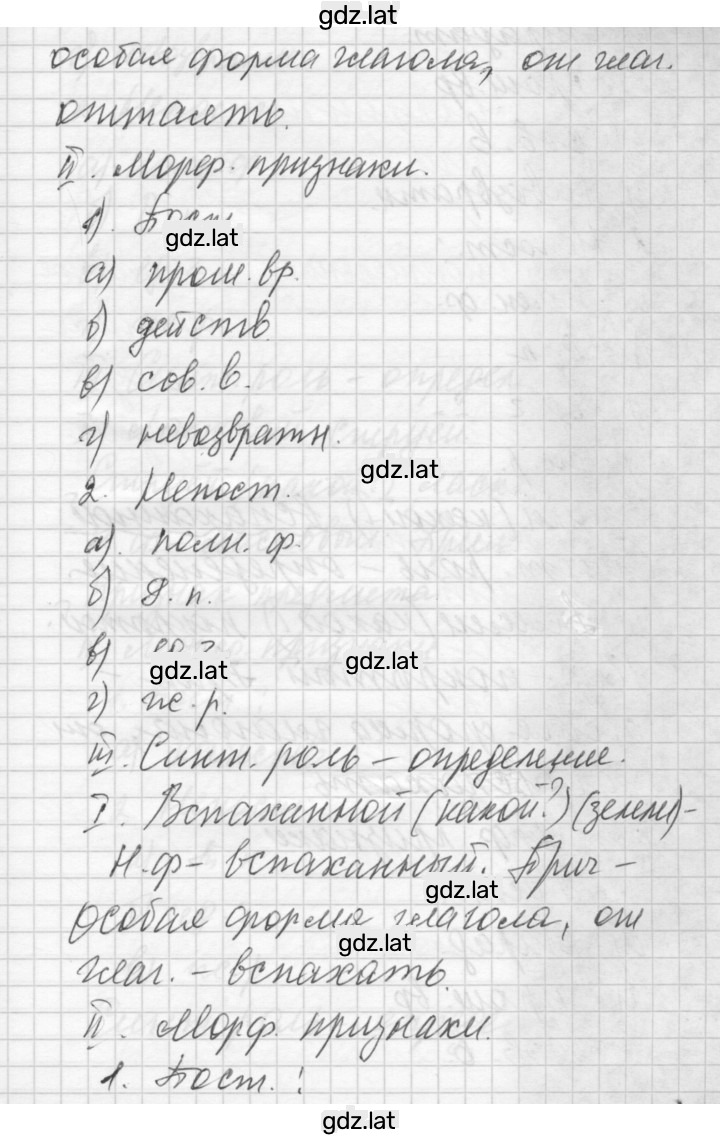 gdz.lat
особая форма глагола, от глаг.
оттаять.
II. Морф. признаки.
1). Пост.
gdz.lat
а) прош. вр.
б) действ.
в) сов. в.
г) невозвратн.
gdz.lat
2. Непост.
а). полн. ф.
б) д. п.
в)
gdz.lat gdz.lat
г) ж. р.
III. Синт. роль – определение.
I. Вспаханной (какой?) (земли) –
Н.ф – вспаханный. Прич –
gdz.lat
Особая форма глагола, от
gdz.lat
глаг. – вспахать.
II. Морф. признаки.
1. Пост. :
gdz.lat